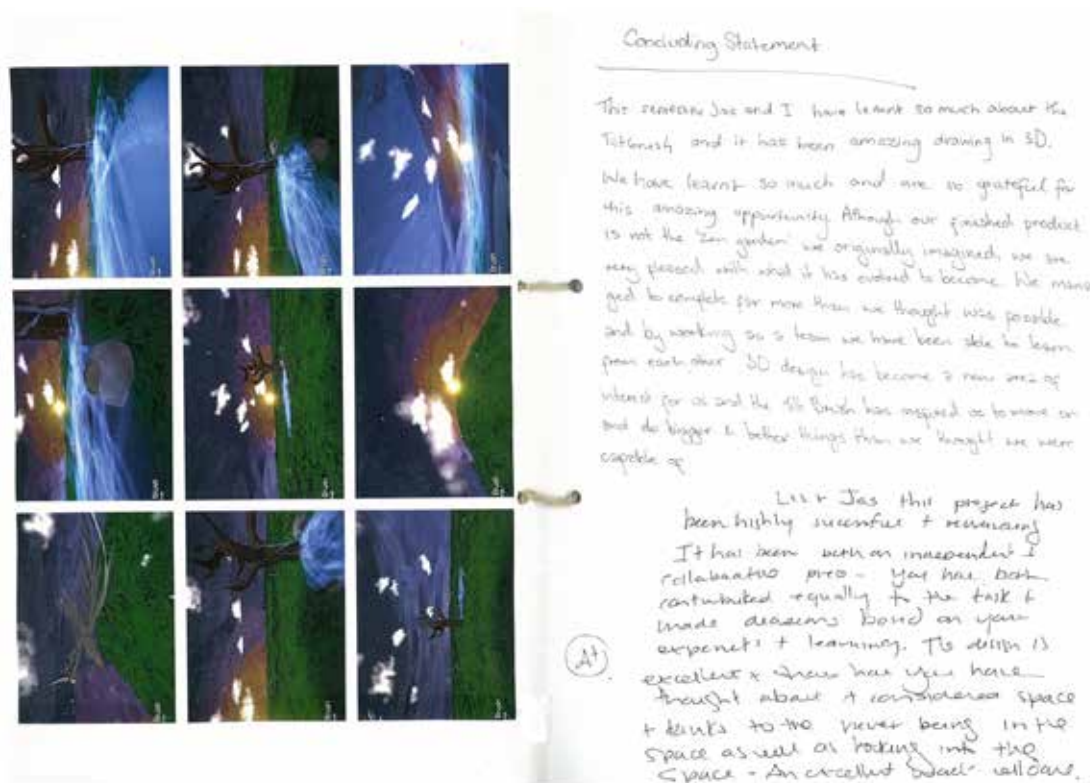 Concluding Statement
This semester Jas and I have learnt so much about the
Tiltbrush and it has been amazing drawing in 3D.
We have learnt so much and are so grateful for
this amazing opportunity Although our finished product
is not the 'Zen garden' we originally imagined, we are
very pleased with what it has evolved to become. We mana
ged to complete far more than we thought was possible
and by working as a team we have been able to learn
from each other 3D design has become a new area of
interest for us and the Tilt Brush has inspired us to move on
and do bigger & better things than we thought we were
capable of
Jas this project has
been highly successful + rewarding
It has been both an independent &
collaborative You have both
contributed equally to the task +
made decisions based on your
+ learning. The design is
excellent + shows how you have
thought about + considered space
+ to the viewer being in the
space as well as looking into the
space - An excellent well done
A+